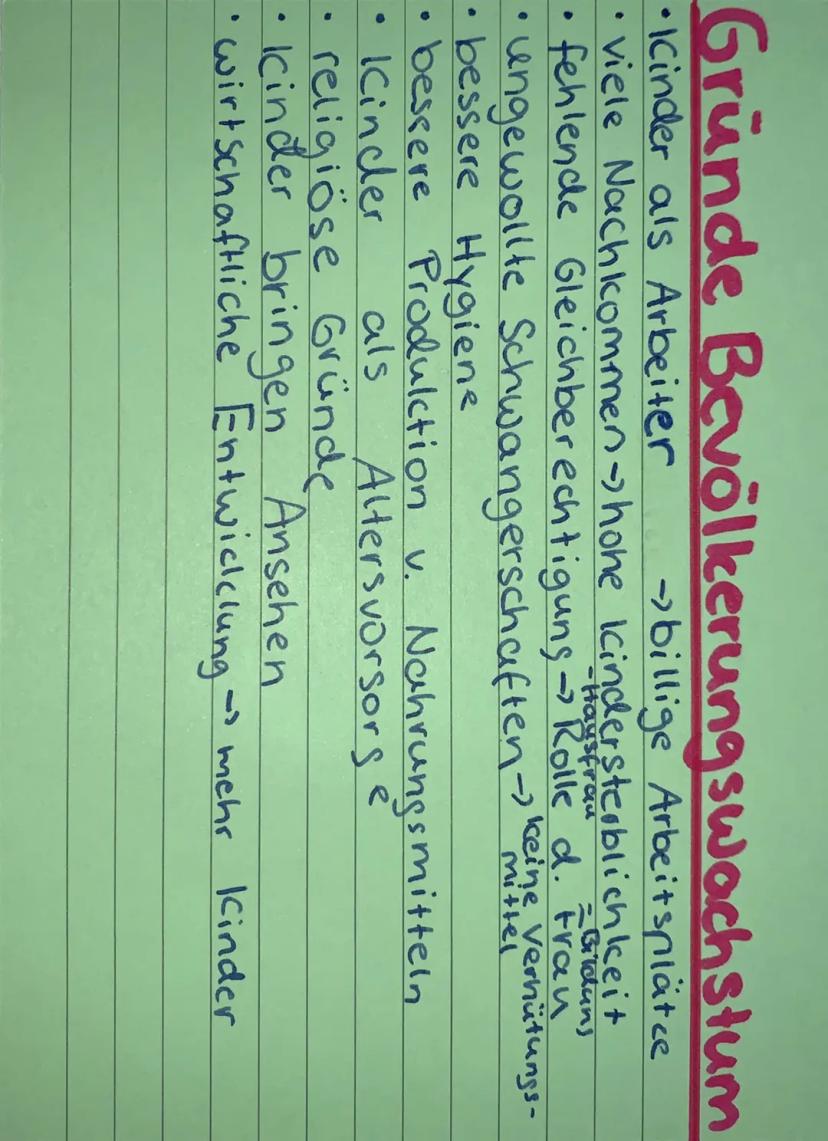 Gründe Bevölkerungswachstum
• Kinder als Arbeiter → billige Arbeitsplätze
• viele Nachkommen → hohe Kindersterblichkeit
- Hausfrau = Bildung
• fehlende Gleichberechtigung → Rolle d. Frau
• ungewollte Schwangerschaften → keine Verhütungs-
mittel
• bessere Hygiene
• bessere Produktion v. Nahrungsmitteln
• Kinder als Altersvorsorge
• religiöse Gründe
• Kinder bringen Ansehen
• wirtschaftliche Entwicklung → mehr Kinder